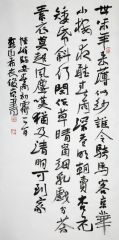 世味年来薄似纱誰令騎馬客京華
小楼一夜聽春雨深巷明朝賣杏花
矮紙斜行閑作草晴窗細乳戲分茶
素衣莫起風塵嘆猶及清明可到家
陸游臨安春雨初霽一首